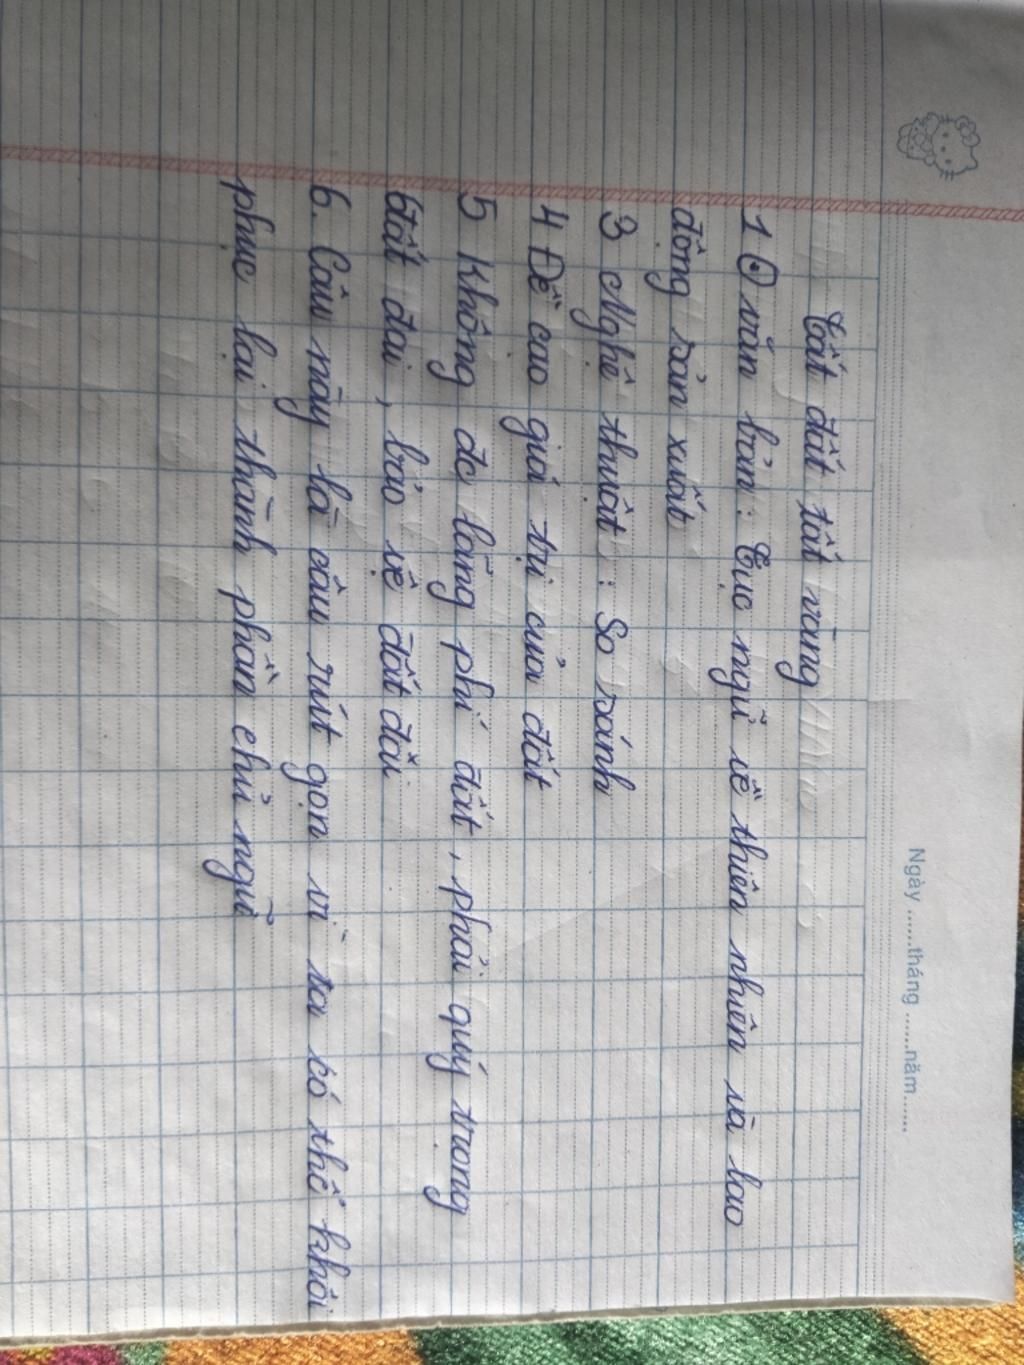 Ngày ......tháng ......năm......
Tất đất tất vàng
1 văn bản: Tục ngữ về thiên nhiên và lao
động sản xuất
3 Nghệ thuật: So sánh
4 Đề cao giá trị của đất
5 Không đc lãng phí đất, phải quý trọng
đất đai, bảo vệ đất đai
6. Câu này là câu rút gọn vì ta có thể khôi
phục lại thành phần chủ ngữ